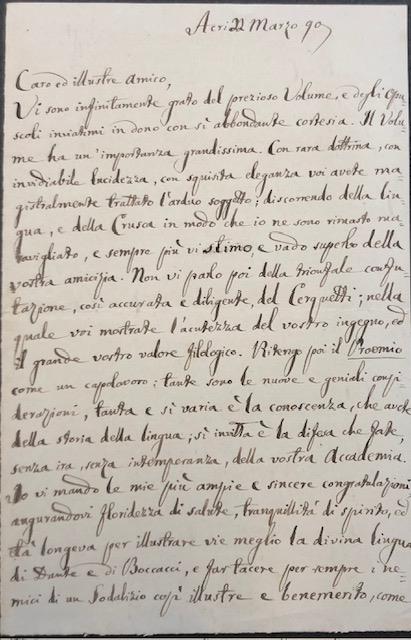 Acri 22 Marzo 90
Caro ed illustre amico,
Vi sono infinitamente grato del prezioso Volume, e degli Opu-
scoli inviatimi in dono con sì abbondante cortesia. Il Volu-
me ha un'importanza grandissima. Con rara dottrina, con
invidiabile lucidezza, con squisita eleganza voi avete ma
gistralmente trattato l'arduo soggetto; discorrendo della lin-
gua, e della Crusca in modo che io ne sono rimasto ma-
ravigliato, e sempre più vi stimo, e vado superbo della
vostra amicizia. Non vi parlo poi della trionfale confu-
tazione, così accurata e diligente, del Cerquetti; nella
quale voi mostrate l'acutezza del vostro ingegno, ed
il grande vostro valore filologico. Ritengo poi il Proemio
come un capolavoro: tante sono le nuove e geniali consi-
derazioni, tanta e sì varia è la conoscenza, che avete
della storia della lingua; sì invitta è la difesa che fate,
senza ira, senza intemperanza, della vostra Accademia.
Io vi mando le mie più ampie e sincere congratulazioni
augurandovi floridezza di salute, tranquillità di spirito, ed
età longeva per illustrare vie meglio la divina lingua
di Dante e di Boccacci, e far tacere per sempre i ne-
mici di un Sodalizio così illustre e benemerito, come